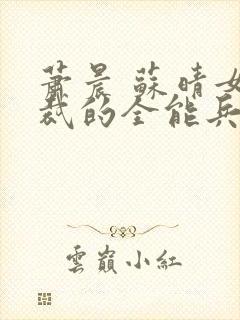 蕭晨蘇晴女
裁的全能兵
雲巔小紅